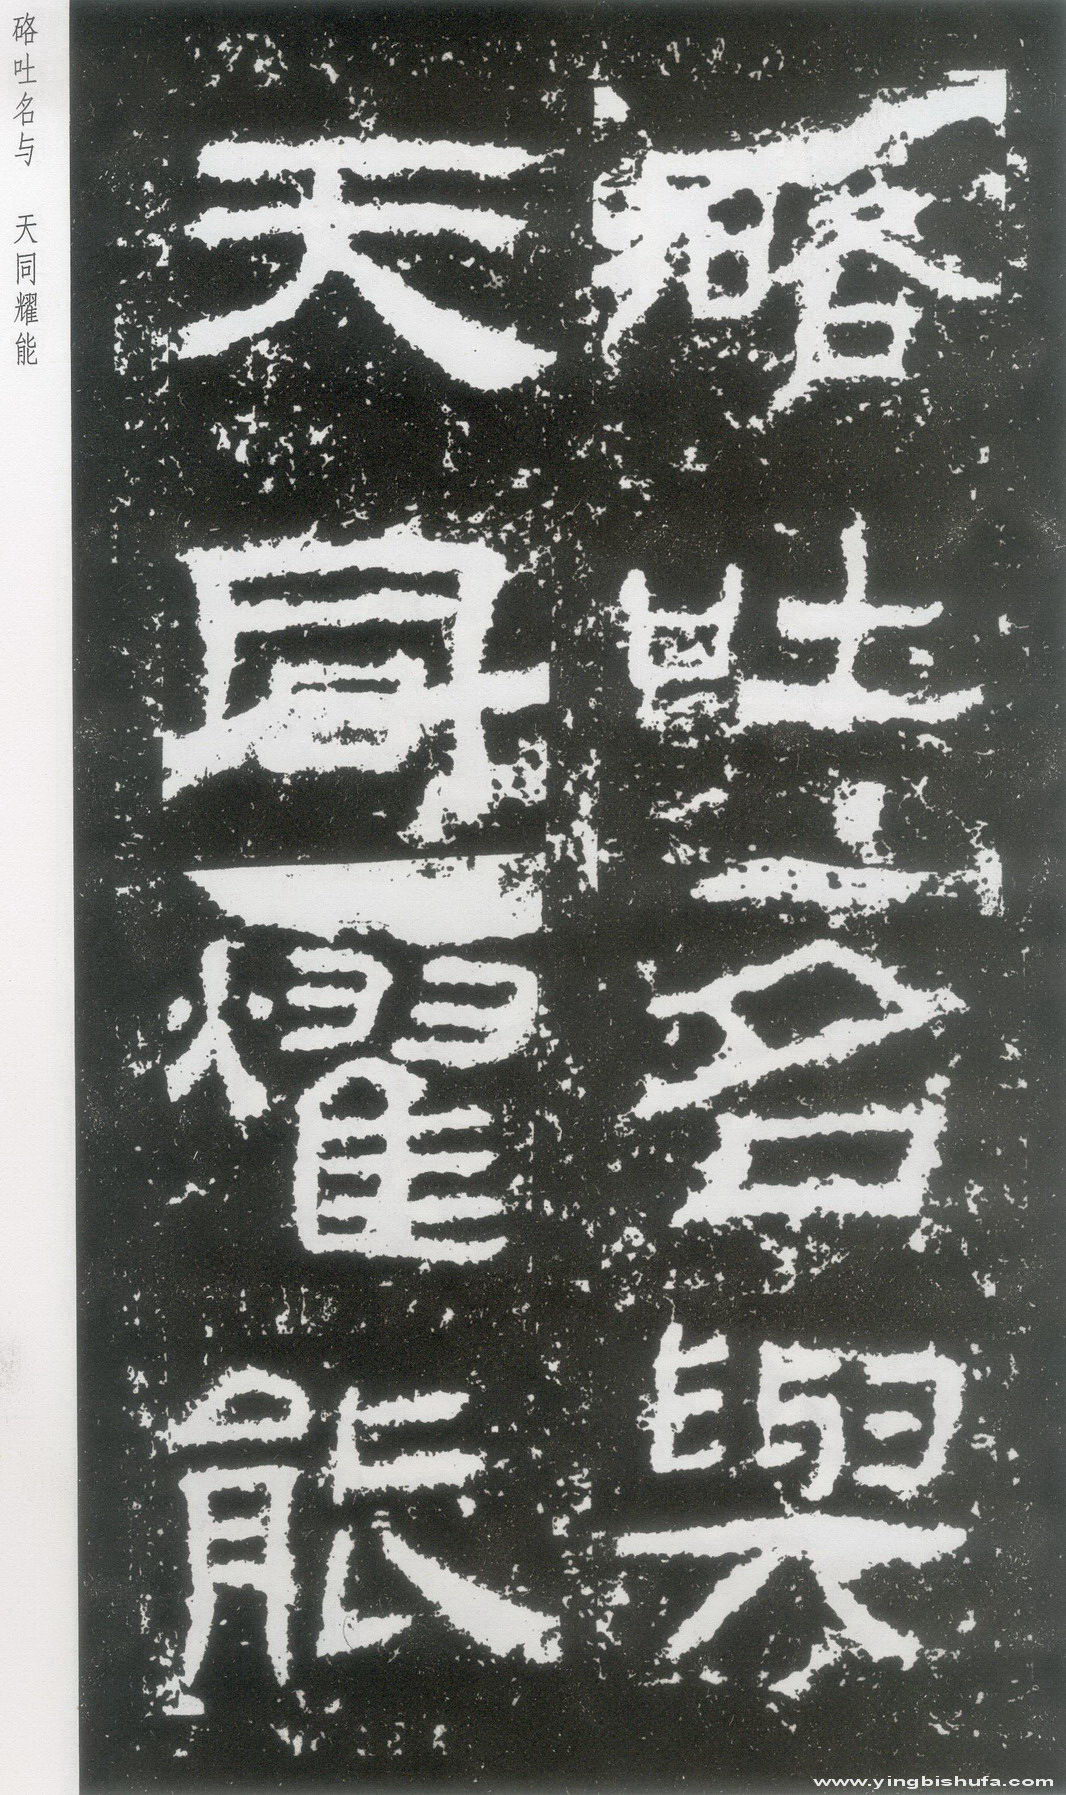 硌吐名與
天同耀能
硌吐名与 天同耀能
www.yingbishufa.com